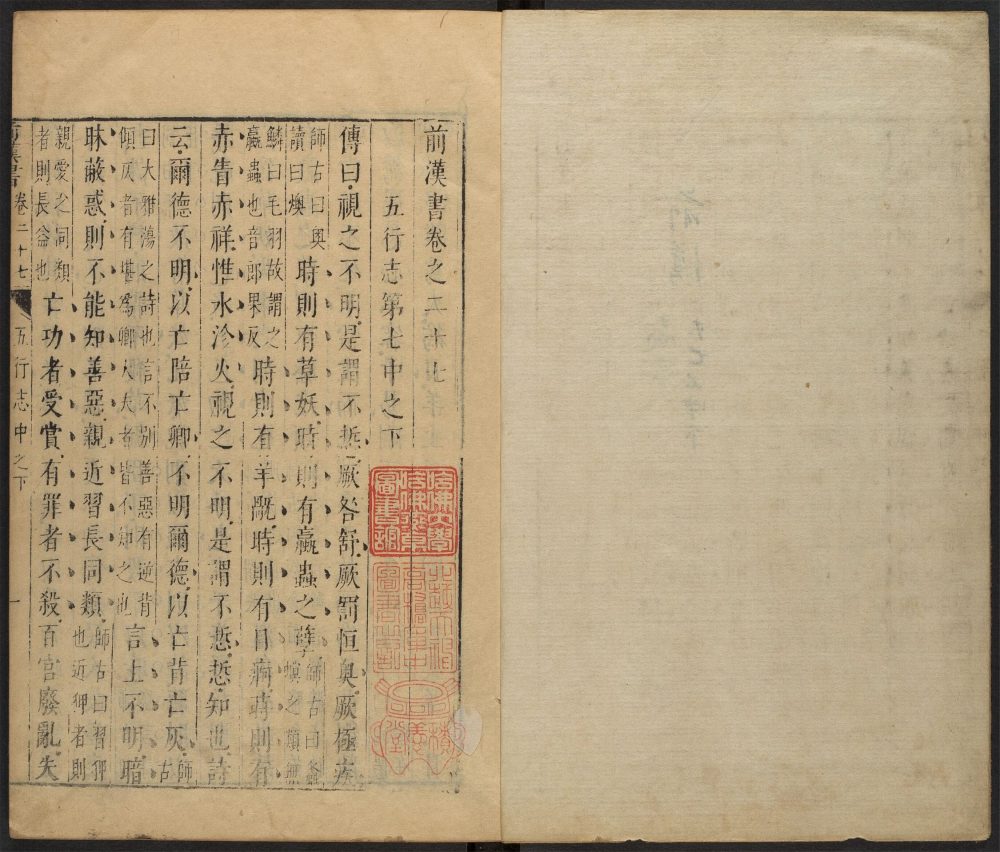 前漢書卷之二十七
五行志第七中之下
傳曰視之不明是謂不悊厥咎舒厥罰恒奧厥極疾
師古曰奧讀曰燠時則有草妖時則有蠃蟲之孽師古曰螽螟之類無
鱗曰毛羽故謂之蠃蟲也音郎果反時則有羊旤時則有目痾時則有
赤眚赤祥惟水沴火視之不明是謂不悊悊知也詩
云爾德不明以亡陪亡卿不明爾德以亡背亡仄師古
曰大雅蕩之詩也言不別善惡有逆背傾仄者有堪爲卿大夫者皆不知之也言上不明暗
昧蔽惑則不能知善惡親近習長同類師古曰習狎也近狎者則
親愛之同類者則長益也亡功者受賞有罪者不殺百官廢亂失
前漢書 卷二十七 五行志中之下 一
哈佛大學哈佛燕京圖書館